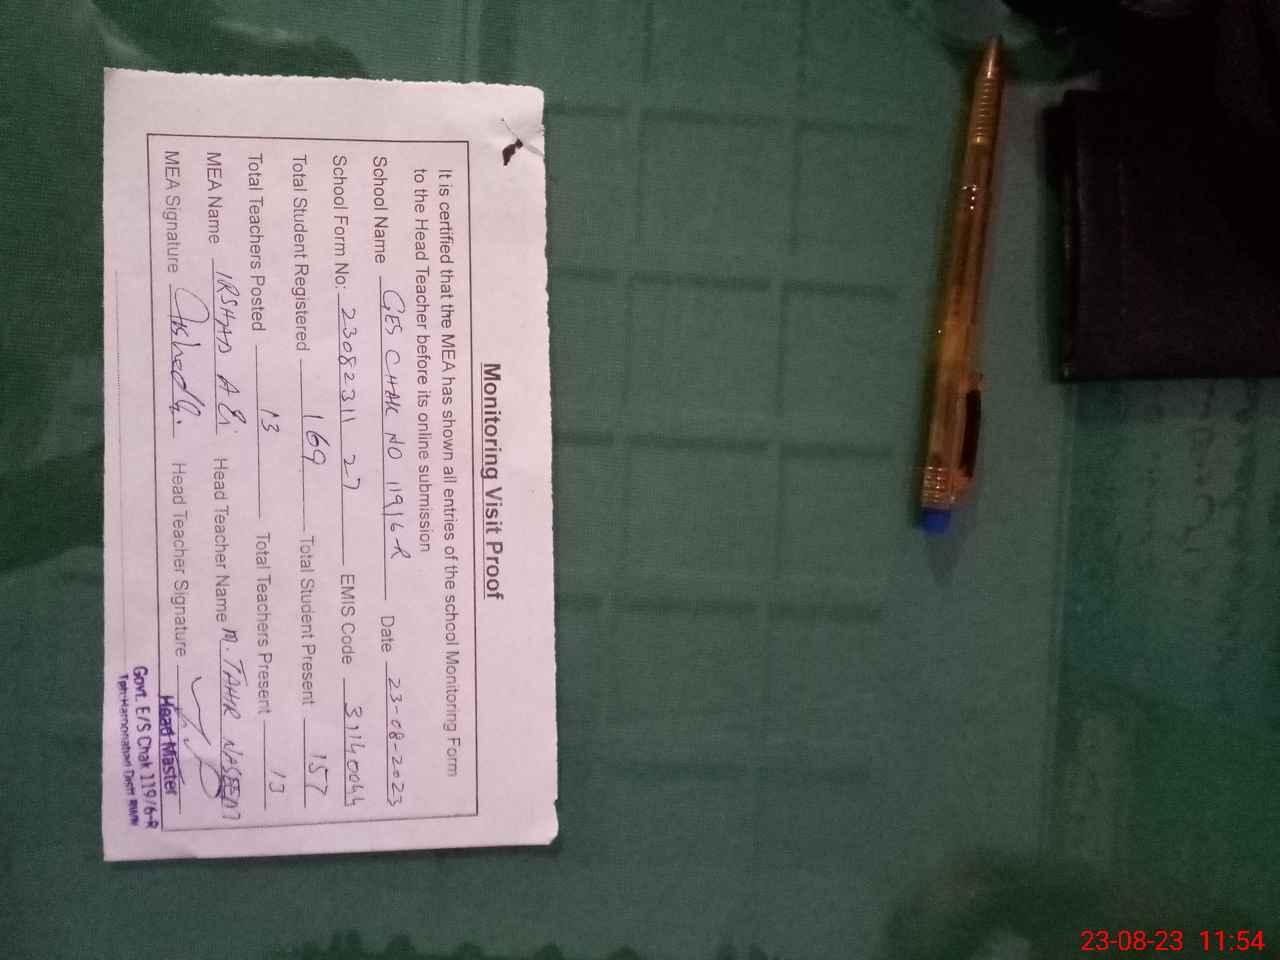 Monitoring Visit Proof
It is certified that the MEA has shown all entries of the school Monitoring Form
to the Head Teacher before its online submission
School Name GES CHAK NO 119/6-R Date 23-08-2023
School Form No: 23082311 27 EMIS Code 31140044
Total Student Registered 169 Total Student Present 157
Total Teachers Posted 13 Total Teachers Present 13
MEA Name IRSHAD ALI Head Teacher Name M. TAHIR NASEEM
MEA Signature Head Teacher Signature
Head Master
Govt. E/S Chak 119/6-R
23-08-23 11:54